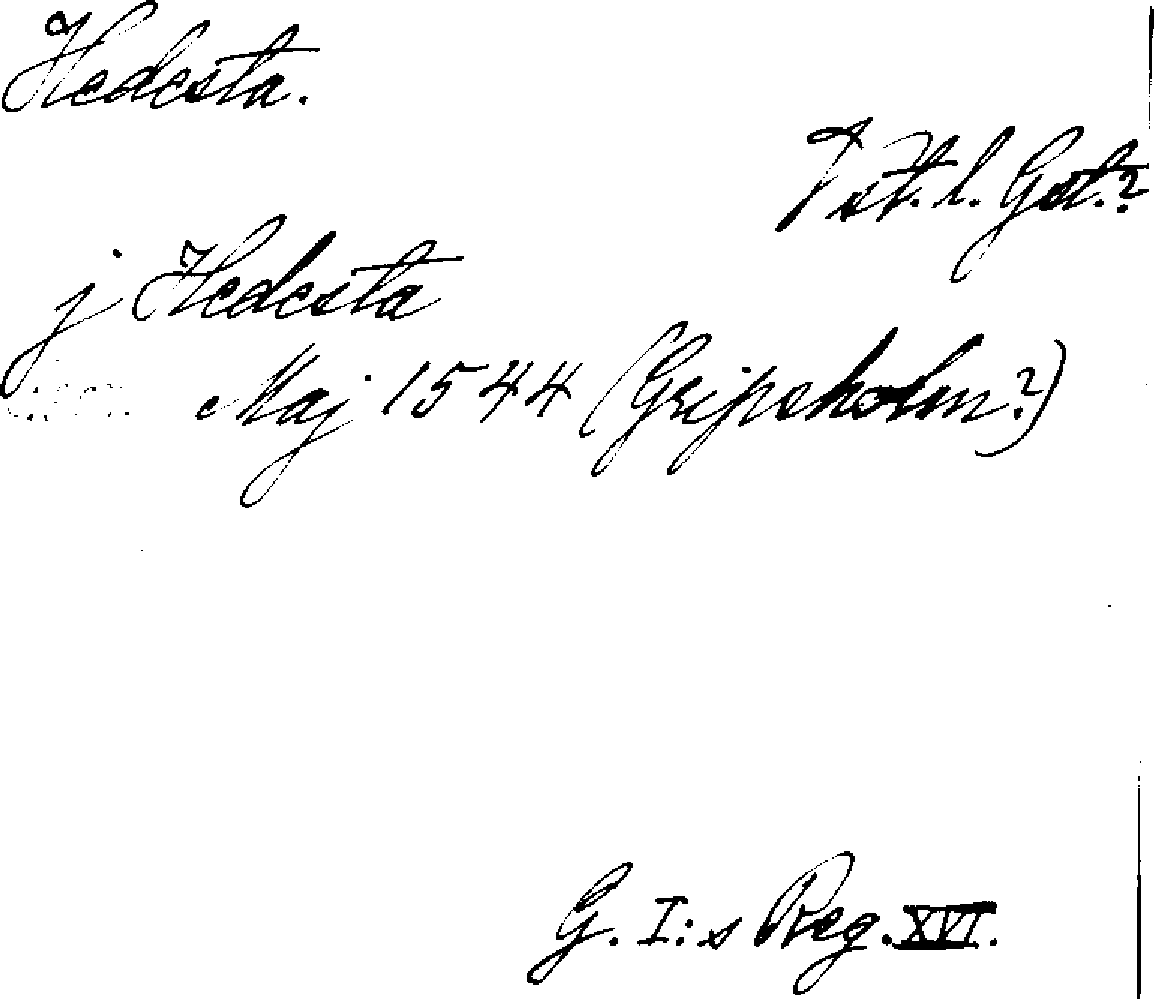 Hedesta.
? st. l. Gst.?
j Hedesta
Maj 1544 (Gripsholm?)
G. I:s Reg. XVI.